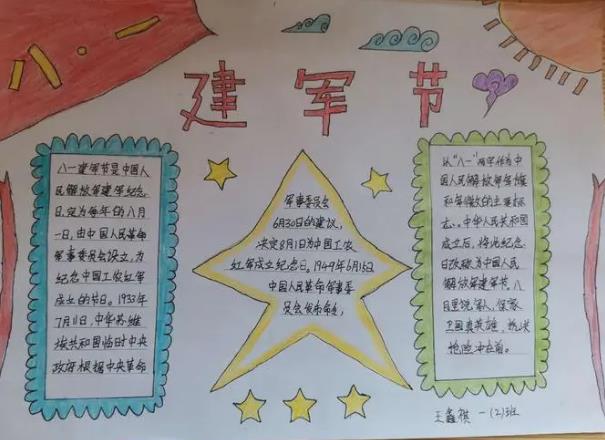 八·一
建军节
八一建军节是中国人
民解放军建军纪念
日,定为每年的八月
一日,由中国人民革命
军事委员会设立,为
纪念中国工农红军
成立的节日。1933年
7月11日,中华苏维
埃共和国临时中央
政府根据中央革命
军事委员会
6月30日的建议,
决定8月1日为中国工农
红军成立纪念日。1949年6月15日
中国人民革命军事委
员会发布命令,
以"八一"两字作为中
国人民解放军军旗
和军徽的主要标
志。中华人民共和国
成立后,将此纪念
日改称为中国人民
解放军建军节。八
月里说军人,保家
卫国真英雄,抗洪
抢险冲在前。
王鑫祺 一(2)班